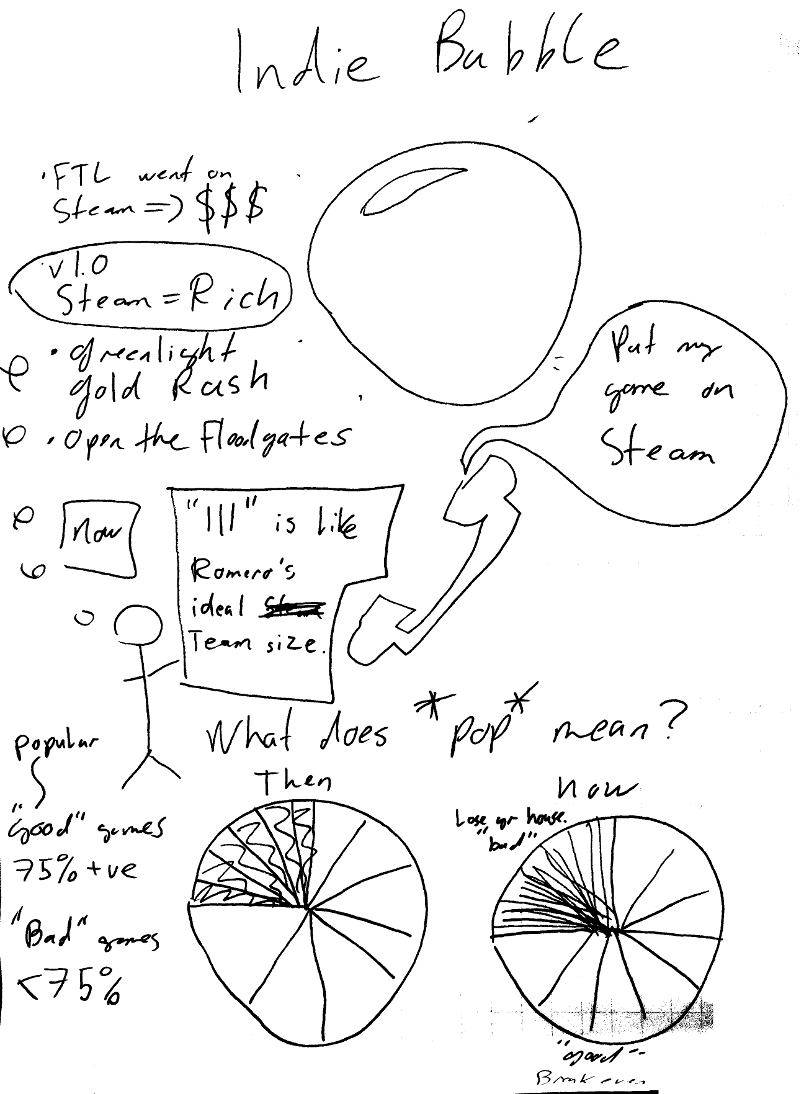 Indie Bubble
• FTL went on
Steam => $$$
v1.0
Steam = Rich
• greenlight
gold Rush
• Open the Floodgates
Put my
game on
Steam
now
"111" is like
Romero's
ideal
Team size.
What does *pop* mean?
popular
"Good" games
75% +ve
"Bad" games
<75%
Then
now
Lose ur house.
"bad"
"good"
Break even